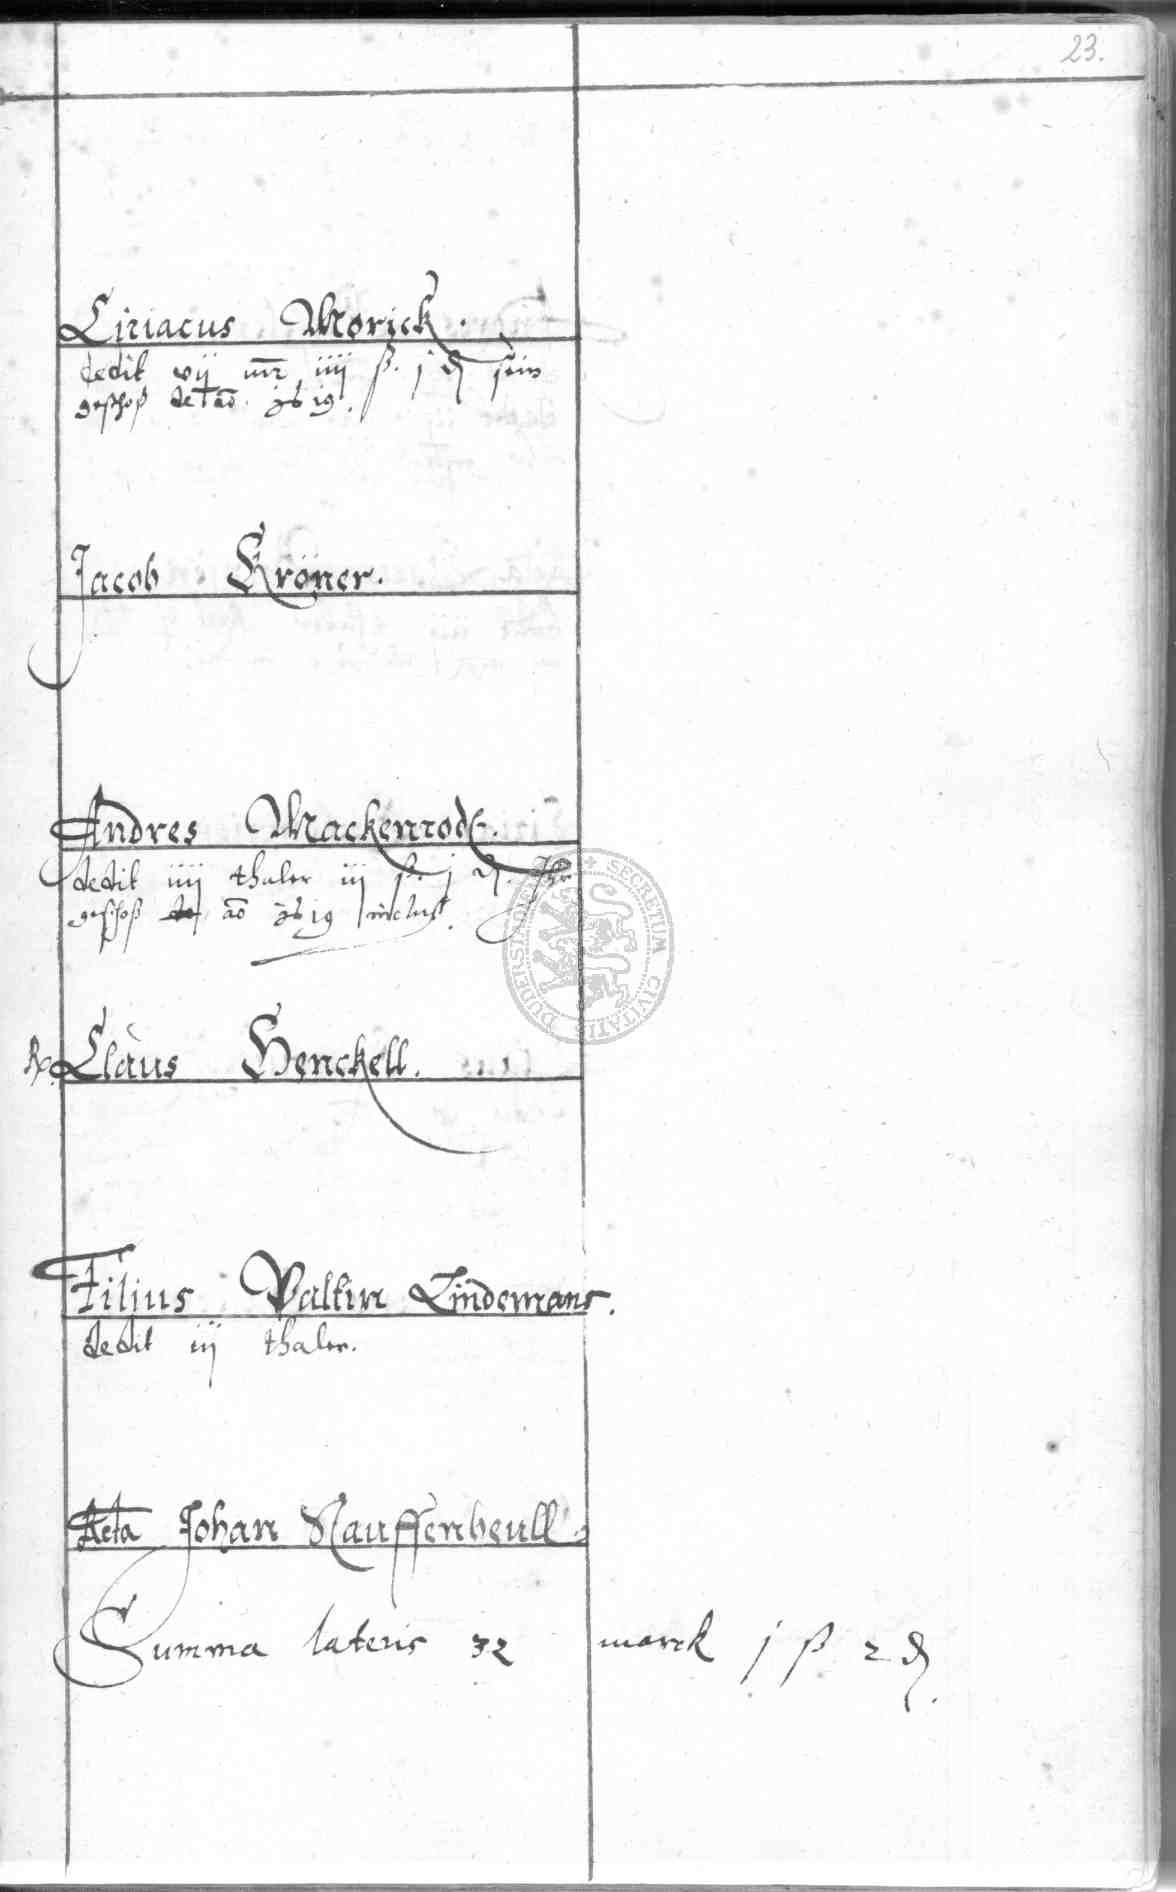 23.
Ciriacus Morick.
dedit vij mr iiij ß. j ₰ sein
geschoß de ao. 1619.
Jacob Kröner.
Andres Mackenrodt.
dedit iiij thaler iij ß. j ₰. Ihr
geschoß de ao 1619 inclus.
Claus Henckell.
Filius Valtin Lindemans.
dedit iij thaler.
Relicta Johan Nauffenbeull
Summa lateris 32 marck j ß 2 ₰.
SECRETUM CIVITATIS DUDERSTADENSIS